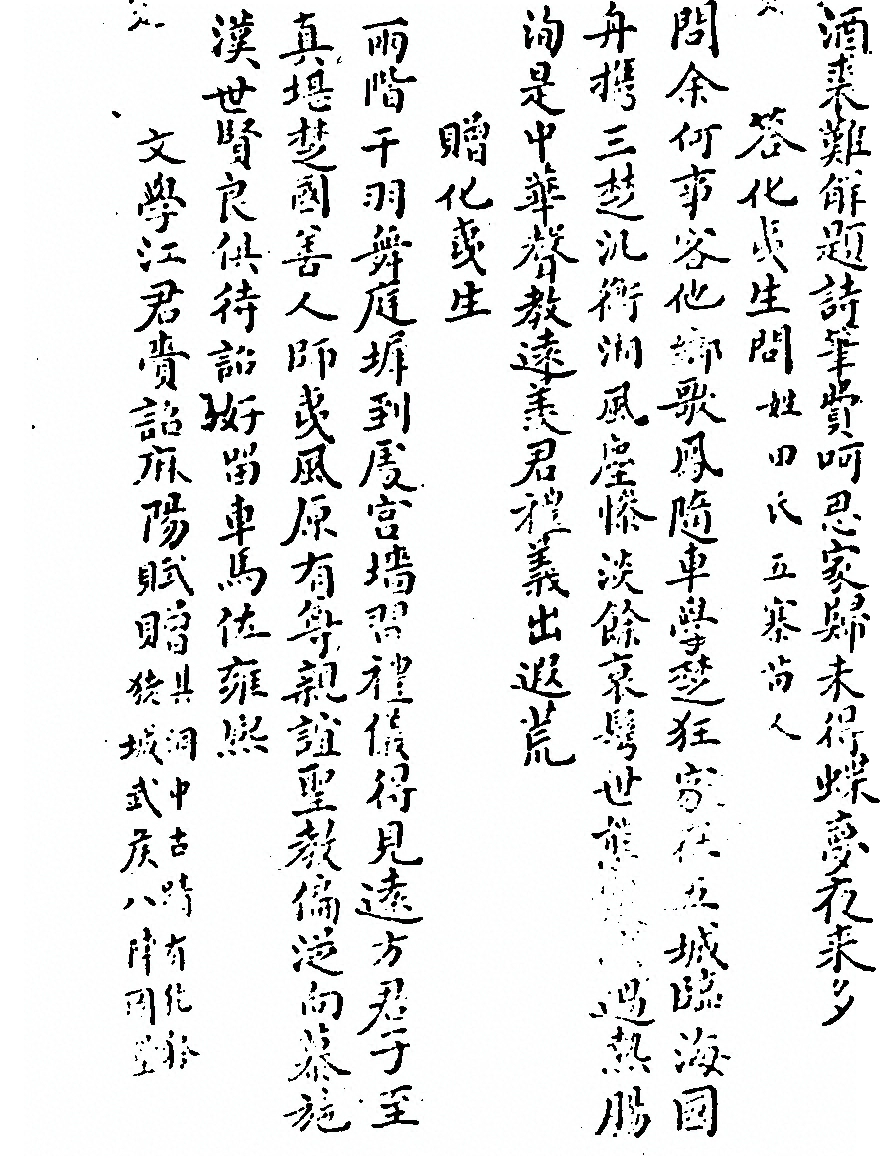 酒来難解題詩筆費呵思家歸未得蝶夢夜来多
荅化夷生問姓田氏五寨苗人
問余何事客他鄉歌鳳隨車學楚狂家在五城臨海國
舟携三楚汎衡湘風塵慘淡餘衰鬂世態過熱腸
洵是中華聲教遠羨君禮義出遐荒
贈化夷生
兩階干羽舞庭墀到處宮墻習禮儀得見遠方君子至
真堪楚國善人師夷風原有尊親誼聖教偏深向慕施
漢世賢良俱待詔好留車馬佐雍熙
文學江君賚詔麻陽賦贈其洞中古蹟有化
城武侯八陣圖